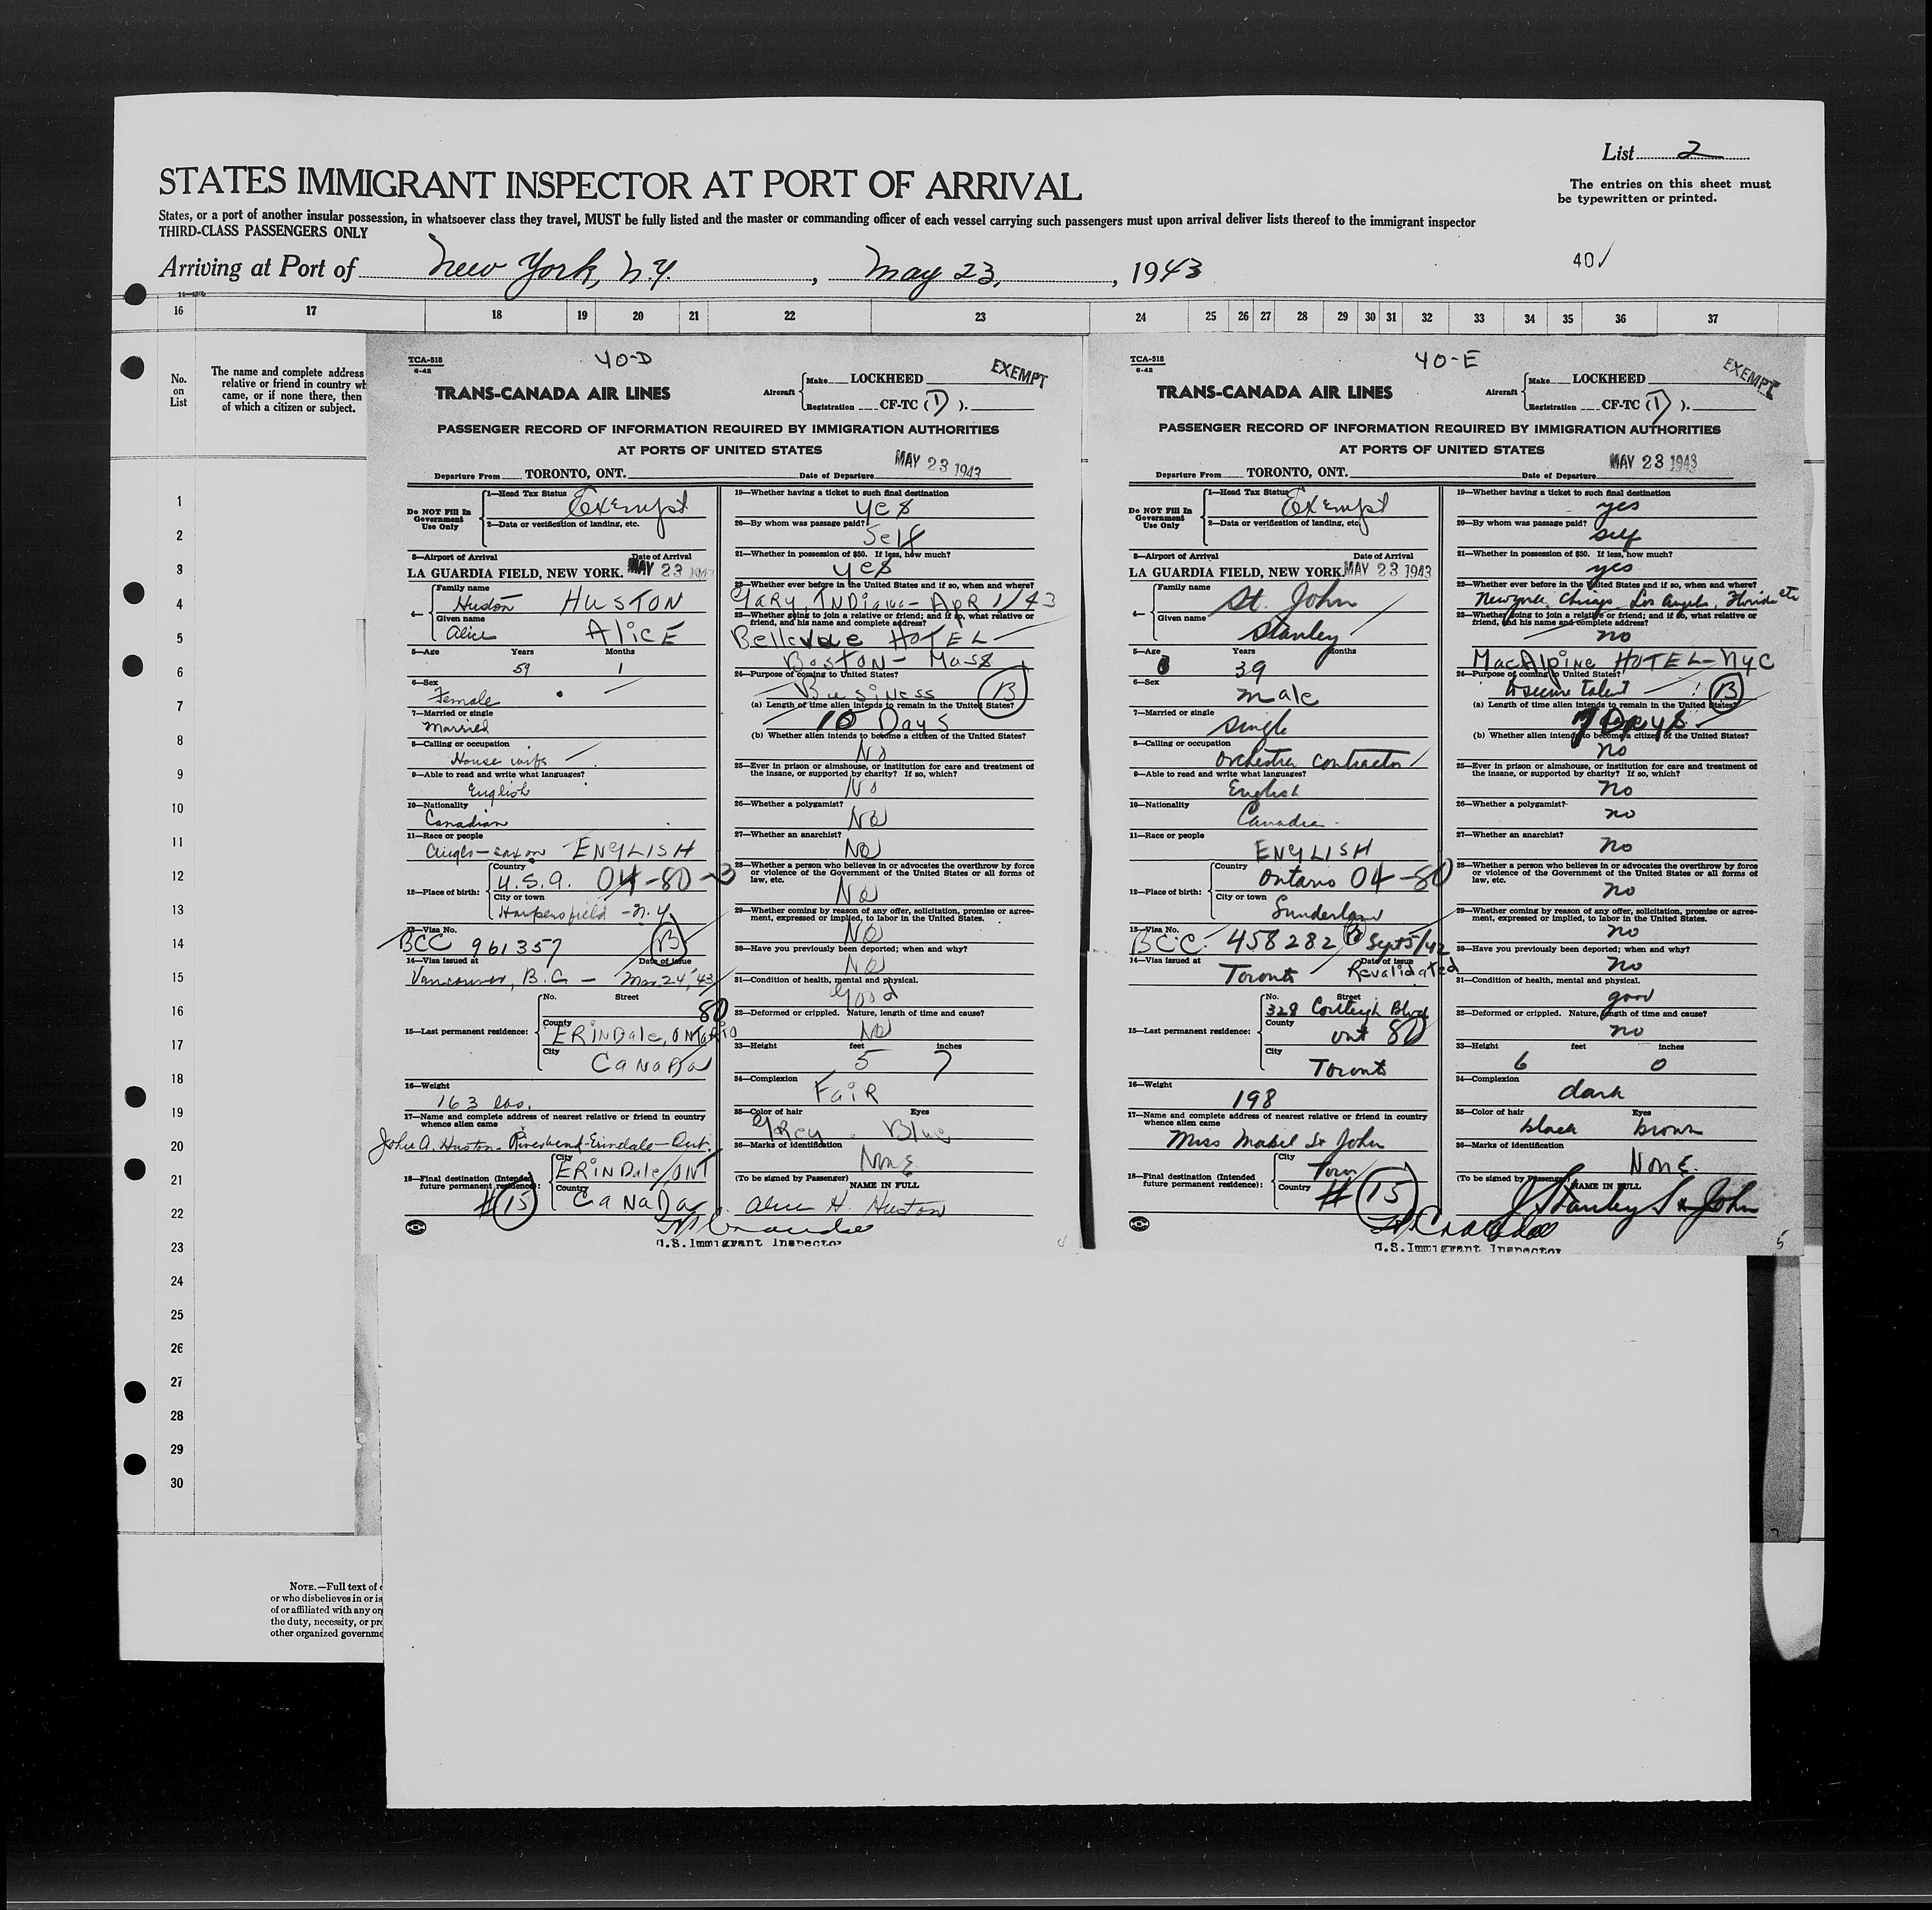 List 2
STATES IMMIGRANT INSPECTOR AT PORT OF ARRIVAL
The entries on this sheet must
be typewritten or printed.
States, or a port of another insular possession, in whatsoever class they travel, MUST be fully listed and the master or commanding officer of each vessel carrying such passengers must upon arrival deliver lists thereof to the immigrant inspector
THIRD-CLASS PASSENGERS ONLY
Arriving at Port of New York, N.Y. , May 23, , 1943
40
16 17 18 19 20 21 22 23 24 25 26 27 28 29 30 31 32 33 34 35 36 37
No.
on
List
The name and complete address
relative or friend in country wh
came, or if none there, then
of which a citizen or subject.
1
2
3
4
5
6
7
8
9
10
11
12
13
14
15
16
17
18
19
20
21
22
23
24
25
26
27
28
29
30
NOTE.—Full text of
or who disbelieves in or is
of or affiliated with any org
the duty, necessity, or pro
other organized governme
TCA-518
6-42
40-D
EXEMPT
TRANS-CANADA AIR LINES
Aircraft
Make LOCKHEED
Registration CF-TC (I) ).
PASSENGER RECORD OF INFORMATION REQUIRED BY IMMIGRATION AUTHORITIES
AT PORTS OF UNITED STATES
Departure From TORONTO, ONT. Date of Departure MAY 23 1943
Do NOT Fill In
Government
Use Only
1—Head Tax Status Exempt
2—Data or verification of landing, etc.
3—Airport of Arrival Date of Arrival
LA GUARDIA FIELD, NEW YORK. MAY 23 194
4— Family name
Huston HUSTON
Given name
Alice AlicE
5—Age Years Months
59 1
6—Sex
Female
7—Married or single
Married
8—Calling or occupation
House wife
9—Able to read and write what languages?
English
10—Nationality
Canadian
11—Race or people
Anglo-saxon ENGLISH
12—Place of birth: Country
U.S.A. 04-80-3
City or town
Harpersfield - N.Y.
13—Visa No.
BCC 961357 B
14—Visa issued at Date of issue
Vancouver, B.C. - Mar. 24, '43
15—Last permanent residence: No. Street
80
County
ERINDale, ONTARIO
City
CaNaDa
16—Weight
163 lbs.
17—Name and complete address of nearest relative or friend in country
whence alien came
John A. Huston - Riverbend - Erindale - Ont.
18—Final destination (Intended
future permanent residence):
City
ERINDale, ONT
Country
CaNaDa
#15
19—Whether having a ticket to such final destination
yes
20—By whom was passage paid?
Self
21—Whether in possession of $50. If less, how much?
yes
22—Whether ever before in the United States and if so, when and where?
GARY, INDiana - ApR 1/43
23—Whether going to join a relative or friend; and if so, what relative or
friend, and his name and complete address?
Bellevue HOTEL
BOSTON - Mass
24—Purpose of coming to United States?
Business B
(a) Length of time alien intends to remain in the United States?
10 Days
(b) Whether alien intends to become a citizen of the United States?
No
25—Ever in prison or almshouse, or institution for care and treatment of
the insane, or supported by charity? If so, which?
No
26—Whether a polygamist?
No
27—Whether an anarchist?
No
28—Whether a person who believes in or advocates the overthrow by force
or violence of the Government of the United States or all forms of
law, etc.
No
29—Whether coming by reason of any offer, solicitation, promise or agree-
ment, expressed or implied, to labor in the United States.
No
30—Have you previously been deported; when and why?
No
31—Condition of health, mental and physical.
Good
32—Deformed or crippled. Nature, length of time and cause?
No
33—Height feet inches
5 7
34—Complexion
FaiR
35—Color of hair Eyes
Grey Blue
36—Marks of identification
None
(To be signed by Passenger)
NAME IN FULL
Alice H. Huston
U.S. Immigrant Inspector
TCA-518
6-42
40-E
EXEMPT
TRANS-CANADA AIR LINES
Aircraft
Make LOCKHEED
Registration CF-TC (I) ).
PASSENGER RECORD OF INFORMATION REQUIRED BY IMMIGRATION AUTHORITIES
AT PORTS OF UNITED STATES
Departure From TORONTO, ONT. Date of Departure MAY 23 1943
Do NOT Fill In
Government
Use Only
1—Head Tax Status Exempt
2—Data or verification of landing, etc.
3—Airport of Arrival Date of Arrival
LA GUARDIA FIELD, NEW YORK MAY 23 1943
4— Family name
St. John
Given name
Stanley
5—Age Years Months
39
6—Sex
male
7—Married or single
single
8—Calling or occupation
Orchestra Contractor
9—Able to read and write what languages?
English
10—Nationality
Canadian
11—Race or people
ENGLISH
12—Place of birth: Country
Ontario 04-80
City or town
Sunderland
13—Visa No.
BCC. 458282 Sept 5/42
14—Visa issued at Date of issue
Toronto Revalidated
15—Last permanent residence: No. Street
328 Blvd
County
Ont 80
City
Toronto
16—Weight
198
17—Name and complete address of nearest relative or friend in country
whence alien came
Miss Mabel St John
18—Final destination (Intended
future permanent residence):
City
Country
#15
19—Whether having a ticket to such final destination
yes
20—By whom was passage paid?
self
21—Whether in possession of $50. If less, how much?
yes
22—Whether ever before in the United States and if so, when and where?
New York, Chicago, Los Angeles, Florida etc
23—Whether going to join a relative or friend; and if so, what relative or
friend, and his name and complete address?
no
MacAlpine HOTEL - NYC
24—Purpose of coming to United States?
to secure talent B
(a) Length of time alien intends to remain in the United States?
7 Days
(b) Whether alien intends to become a citizen of the United States?
no
25—Ever in prison or almshouse, or institution for care and treatment of
the insane, or supported by charity? If so, which?
no
26—Whether a polygamist?
no
27—Whether an anarchist?
no
28—Whether a person who believes in or advocates the overthrow by force
or violence of the Government of the United States or all forms of
law, etc.
no
29—Whether coming by reason of any offer, solicitation, promise or agree-
ment, expressed or implied, to labor in the United States.
no
30—Have you previously been deported; when and why?
no
31—Condition of health, mental and physical.
good
32—Deformed or crippled. Nature, length of time and cause?
no
33—Height feet inches
6 0
34—Complexion
dark
35—Color of hair Eyes
black brown
36—Marks of identification
NonE.
(To be signed by Passenger)
NAME IN FULL
J Stanley St John
U.S. Immigrant Inspector
5